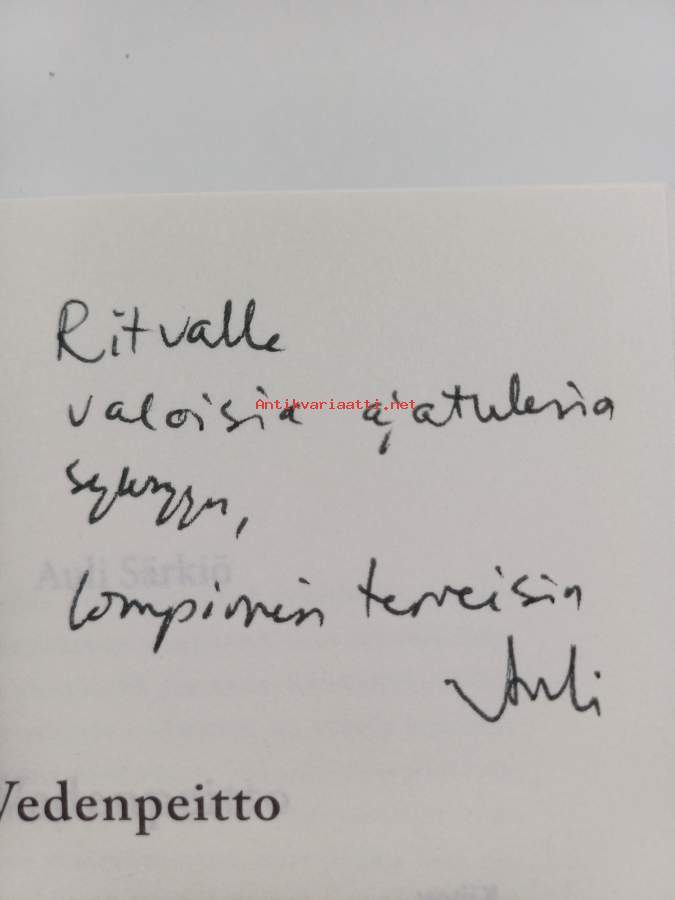 Ritvalle
valoisia ajatuksia
syksyyn,
lämpimin terveisin
Auli
Antikvariaatti.net
Auli Särkiö
Vedenpeitto